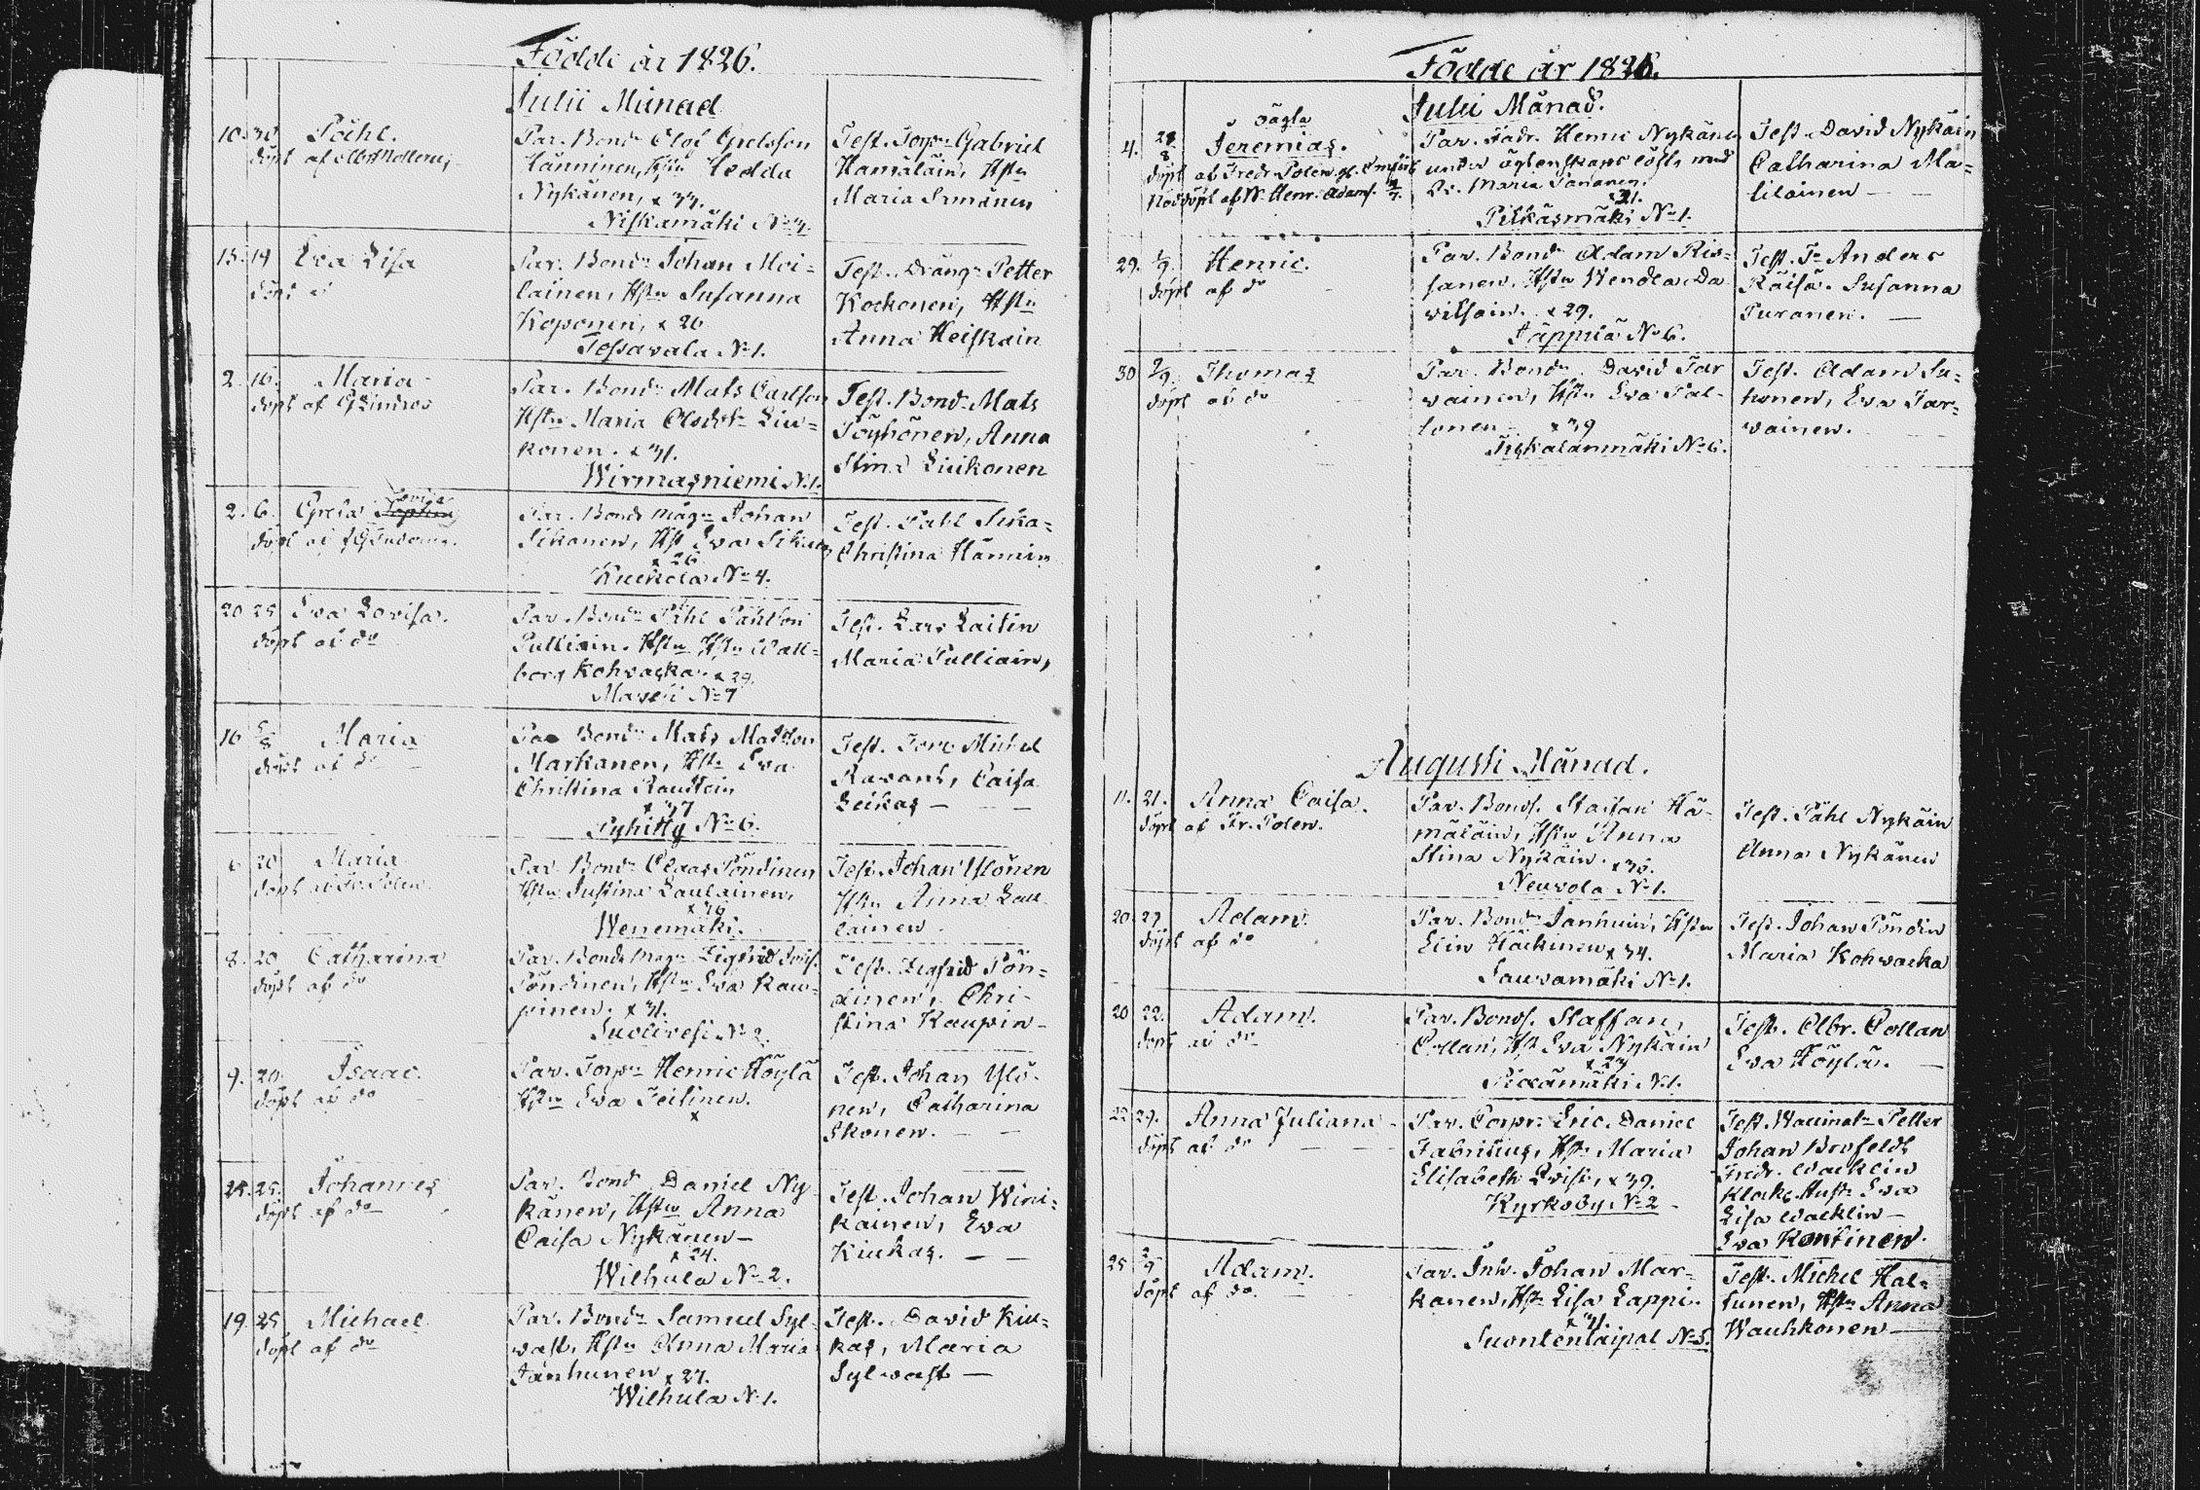 Födde år 1826.
Julii Månad
10. 30. Påhl.
döpt af
Par. Bond. Olof Grelsson
Hänninen, Hstr. Hedda
Nykänen, x 33.
Niskamäki No 3.
Test. Torp. Gabriel
Hämäläin, Hstr.
Maria Immonen
15. 19 Eva Lisa
döpt af
Par. Bond. Johan Moi-
lainen, Hstru Susanna
Koponen, x 26
Tossavala No 1.
Test. Dräng Petter
Kockonen, Hstru
Anna Heiskain
2. 16. Maria
döpt af G Lindros
Par. Bond. Mats Carlsson
Hstru Maria Olsdr. Liu-
konen. x 31.
Wirmasniemi No 1.
Test. Bond. Mats
Töyhönen, Anna
Stina Liukonen
2. 6. Greta Lovisa
döpt af
Par. Bonde Måg Johan
Sikanen, Hst Eva
x 26
No 4.
Test. Påhl Sika-
Christina Hännin
20 25 Eva Lovisa.
döpt af do
Par. Bond. Påhl Påhlson
Pulliain. Hstru Wall-
borg Kohvacka. x 29.
No 7
Test. Lars Laitin
Maria Pulliain,
16 5/8 Maria
döpt af do
Par Bond. Mats Matsson
Markanen, Hstr. Eva
Christina Rautiain
x 37
Pyhitty No 6.
Test. Torp Michel
Ravant, Caisa
Leikas —
6 20 Maria
döpt af Fr. Polen
Par Bond. Claas Pöndinen
Hstru Justina Laulainen,
x 36
Wenemäki.
Test. Johan Ylönen
Hstru Anna Lau-
lainen
8. 20 Catharina
döpt af do
Par. Bonde Måg Zigfrid
Pöndinen, Hstru Eva Kau-
pinen. x 31.
Suolivesi No 2.
Test. Zigfrid Pön-
dinen, Chri-
stina Kaupin-
9. 20 Isaac.
döpt af do
Par. Torp. Henric Höylä
Hstru Eva Teitinen.
x
Test. Johan Ylö-
nen, Catharina
Ikonen. —
24. 25. Johannes
döpt af do
Par. Bond Daniel Ny-
känen, Hstru Anna
Caisa Nykänen —
x 24.
Wilhula No 2.
Test. Johan Wini-
kainen, Eva
Kiukas. —
19. 25 Michael
döpt af do
Par. Bond. Samuel Syl-
vast, Hstru Anna Maria
Jänhunen x 27.
Wilhula No 1.
Test. David Kiu-
kas, Maria
Sylvast —
Födde år 1826.
Julii Månad.
oägta
4. 28/8 Jeremias.
döpt af Fredr. Polen
Nöddöpt af N. Henr. Adams.
Par. Fadr. Henric Nykänen
under ägtenskaps löfte med
Maria Pananen.
x 31.
Pitkäsmäki No 1.
Test. David Nykäin
Catharina Ma-
tilainen —
29. Henric.
döpt af do
Par. Bond. Adam Ris-
sanen, Hstru Wendla Da-
vitsain. x 29.
Jäppiä No 6.
Test. Anders
Räisä. Susanna
Puranen. —
30 2/9. Thomas
döpt af do
Par. Bond. David Tar-
vainen, Hstr. Eva Par-
tanen — x 39
Tiskalanmäki No 6.
Test. Adam Su-
honen, Eva Tar-
vainen.
Augusti Månad.
11. 21. Anna Caisa.
döpt af Fr. Polen.
Par. Bonds. Staffan Hä-
mäläin, Hstru Anna
Stina Nykäin.
x 36.
Neuvola No 1.
Test. Påhl Nykäin
Anna Nykänen
20. 27 Adam.
döpt af do
Par. Bond. Janhuin, Hstru
Elin Häckinen x 34.
Sauvamäki No 1.
Test. Johan Pöndin
Maria Kohvacka
20 22. Adam.
döpt af do
Par. Bonds. Staffan
Collan, Hst Eva Nykäin
No 1.
Test. Albr. Collan
Eva Höylä. —
22 29. Anna Juliana —
döpt af do
Par. Corpr. Eric Daniel
Fabritius, Hstr Maria
Elisabeth Qvist, x 39.
Kyrkoby No 2
Test. Waccinat. Petter
Johan Brofeldt
Fredr. Wacklin
Klock. Hustr. Eva
Lisa Wacklin —
Eva Kontinen.
25 3/9 Adam.
döpt af do.
Par. Inh. Johan Mar-
kanen, Hstr Lisa Lappi.
x 31.
Suontentaipal No 5.
Test. Michel Hal-
tunen, Hstru Anna
Wauhkonen —